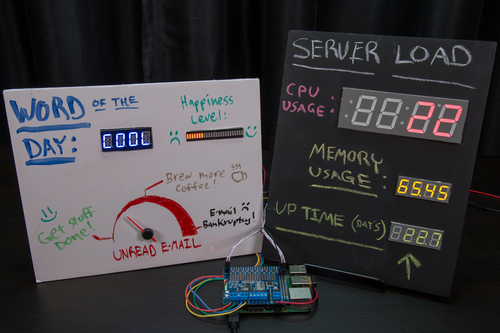 WORD OF THE
DAY: COOL
Happiness
Level:
Brew more
Coffee!
Get stuff
Done!
E-mail
Bankruptcy!
UNREAD E-MAIL
SERVER LOAD
CPU
USAGE: 22
MEMORY
USAGE: 65.45
UP TIME (DAYS)
2221